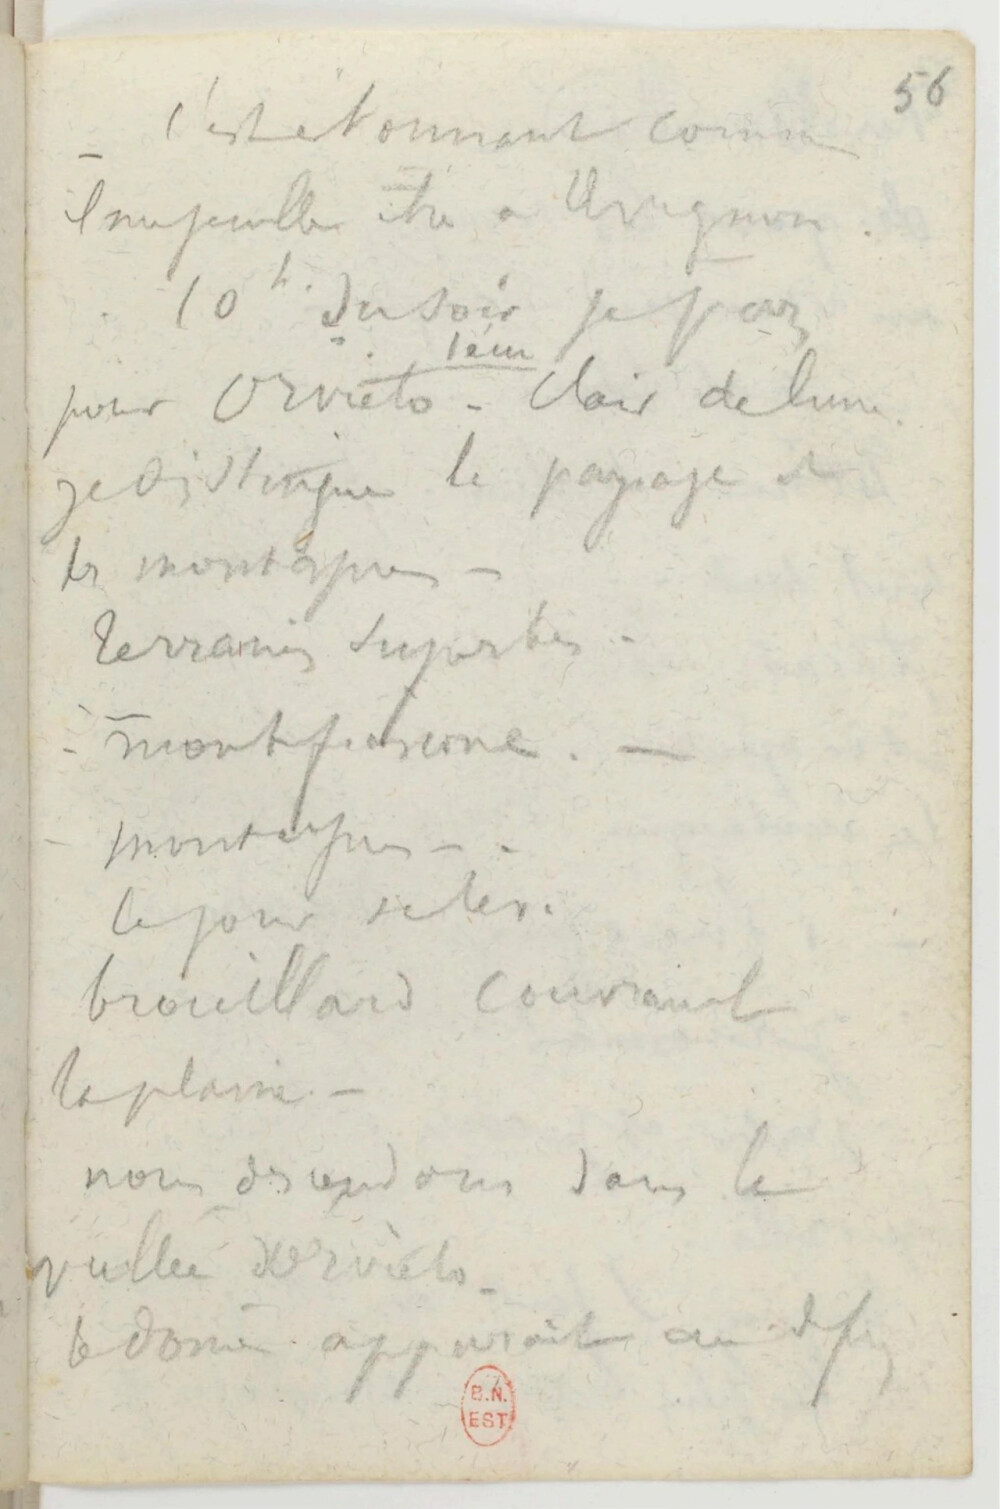 56
c'est etonnant comm
il me semble être a Avignon.
10h. du soir je pars
pour Orvieto - Clair de lune.
je distingue le paysage et
les montagnes -
terrains superbes -
- montefiascone. -
- montagnes - -
le jour se leve.
brouillard couvrant
la plaine. -
nous descendons dans la
vallée d'Orvieto -
le dome apparait au
B.N.
EST